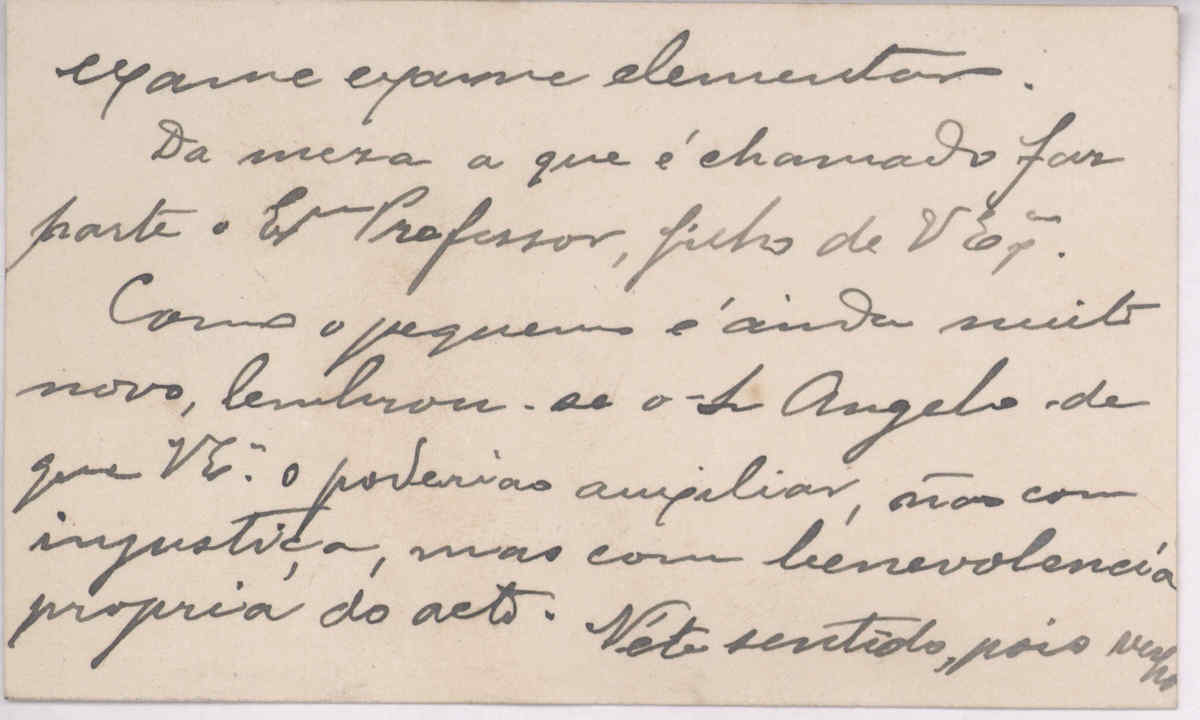 exame exame elementar.
Da meza a que é chamado faz
parte o Exmo Professor, filho de V Exª.
Como o pequeno é ainda muito
novo, lembrou-se o Sr Angelo de
que V Eª. o poderiao auxiliar, não com
injustiça, mas com benevolencia
propria do acto. Nêste sentido, pois venho